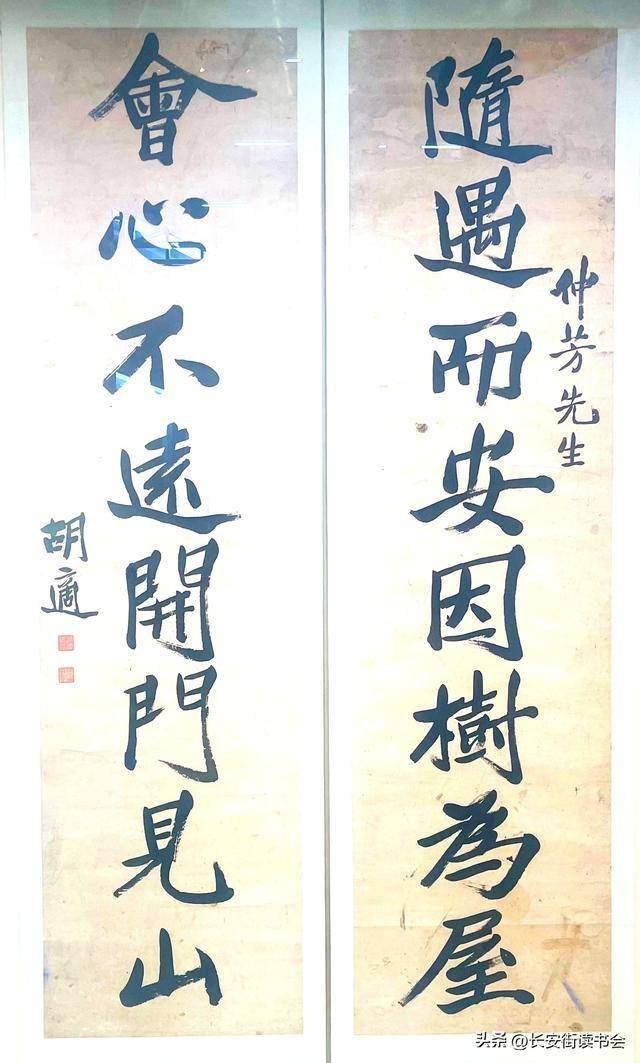 仲芳先生
隨遇而安因樹為屋
會心不遠開門見山
胡適
头条 @长安街读书会